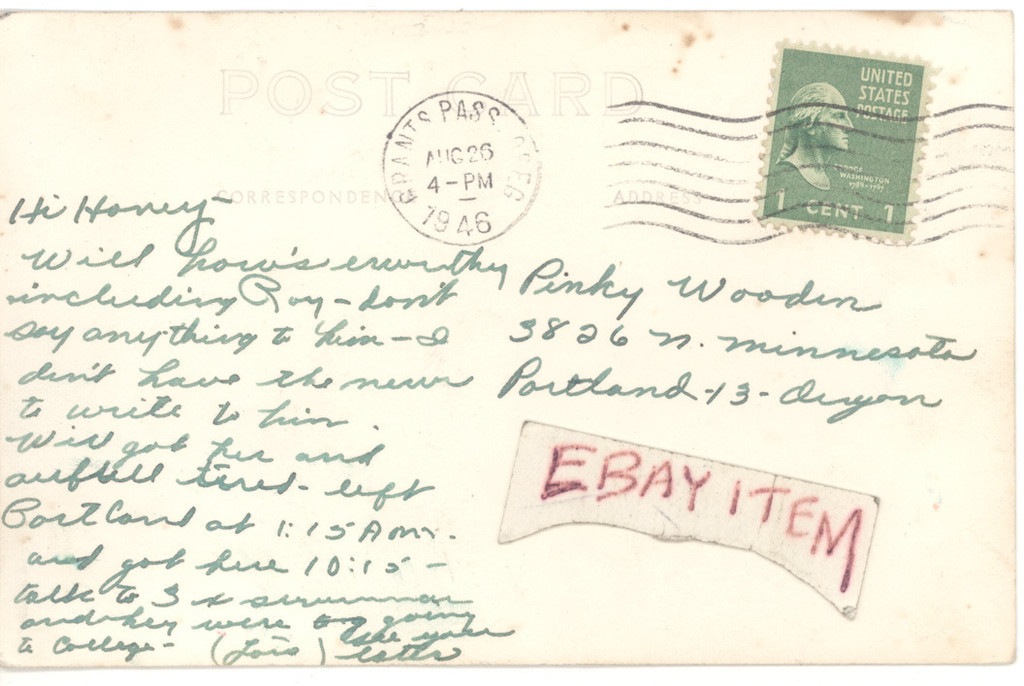 POST CARD
CORRESPONDENCE
ADDRESS
GRANTS PASS, OREG
AUG 26
4-PM
1946
UNITED
STATES
POSTAGE
GEORGE
WASHINGTON
1789-1797
1 CENT 1
Hi Honey-
Will how's everthy
including Roy-don't
say anything to him-I
don't have the nerve
to write to him.
Will got here and
tired-left
Portland at 1:15 Am.
and got here 10:15-
talk to 3 x
and they were going
to College- (Lois) See you
later
Pinky Wooden
3826 N. Minnesota
Portland-13-Oregon
EBAY ITEM